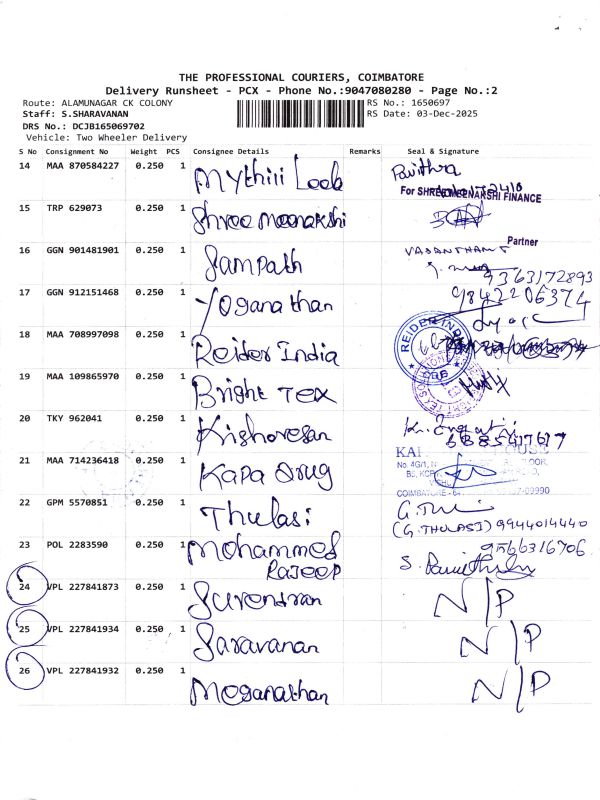 THE PROFESSIONAL COURIERS, COIMBATORE
Delivery Runsheet - PCX - Phone No.:9047080280 - Page No.:2
Route: ALAMUNAGAR CK COLONY RS No.: 1650697
Staff: S.SHARAVANAN RS Date: 03-Dec-2025
DRS No.: DCJB165069702
Vehicle: Two Wheeler Delivery
S No Consignment No Weight PCS Consignee Details Remarks Seal & Signature
14 MAA 870584227 0.250 1 Mythili Pavithra
For SHREE MEENAKSHI FINANCE
15 TRP 629073 0.250 1 Shree meenakshi
Partner
16 GGN 901481901 0.250 1 Sampath VASANTHAM
9363172893
17 GGN 912151468 0.250 1 Yoganathan 9842206374
18 MAA 708997098 0.250 1 Reider India REIDER IND
19 MAA 109865970 0.250 1 Bright Tex
20 TKY 962041 0.250 1 Kishoresan
21 MAA 714236418 0.250 1 Kapa Drug
COIMBATORE
22 GPM 5570851 0.250 1 Thulasi
(G.THULASI) 9944014440
23 POL 2283590 0.250 1 Mohammed Rajeep 9566316706
24 VPL 227841873 0.250 1 Surendran N/P
25 VPL 227841934 0.250 1 Saravanan N/P
26 VPL 227841932 0.250 1 Moganathan N/P